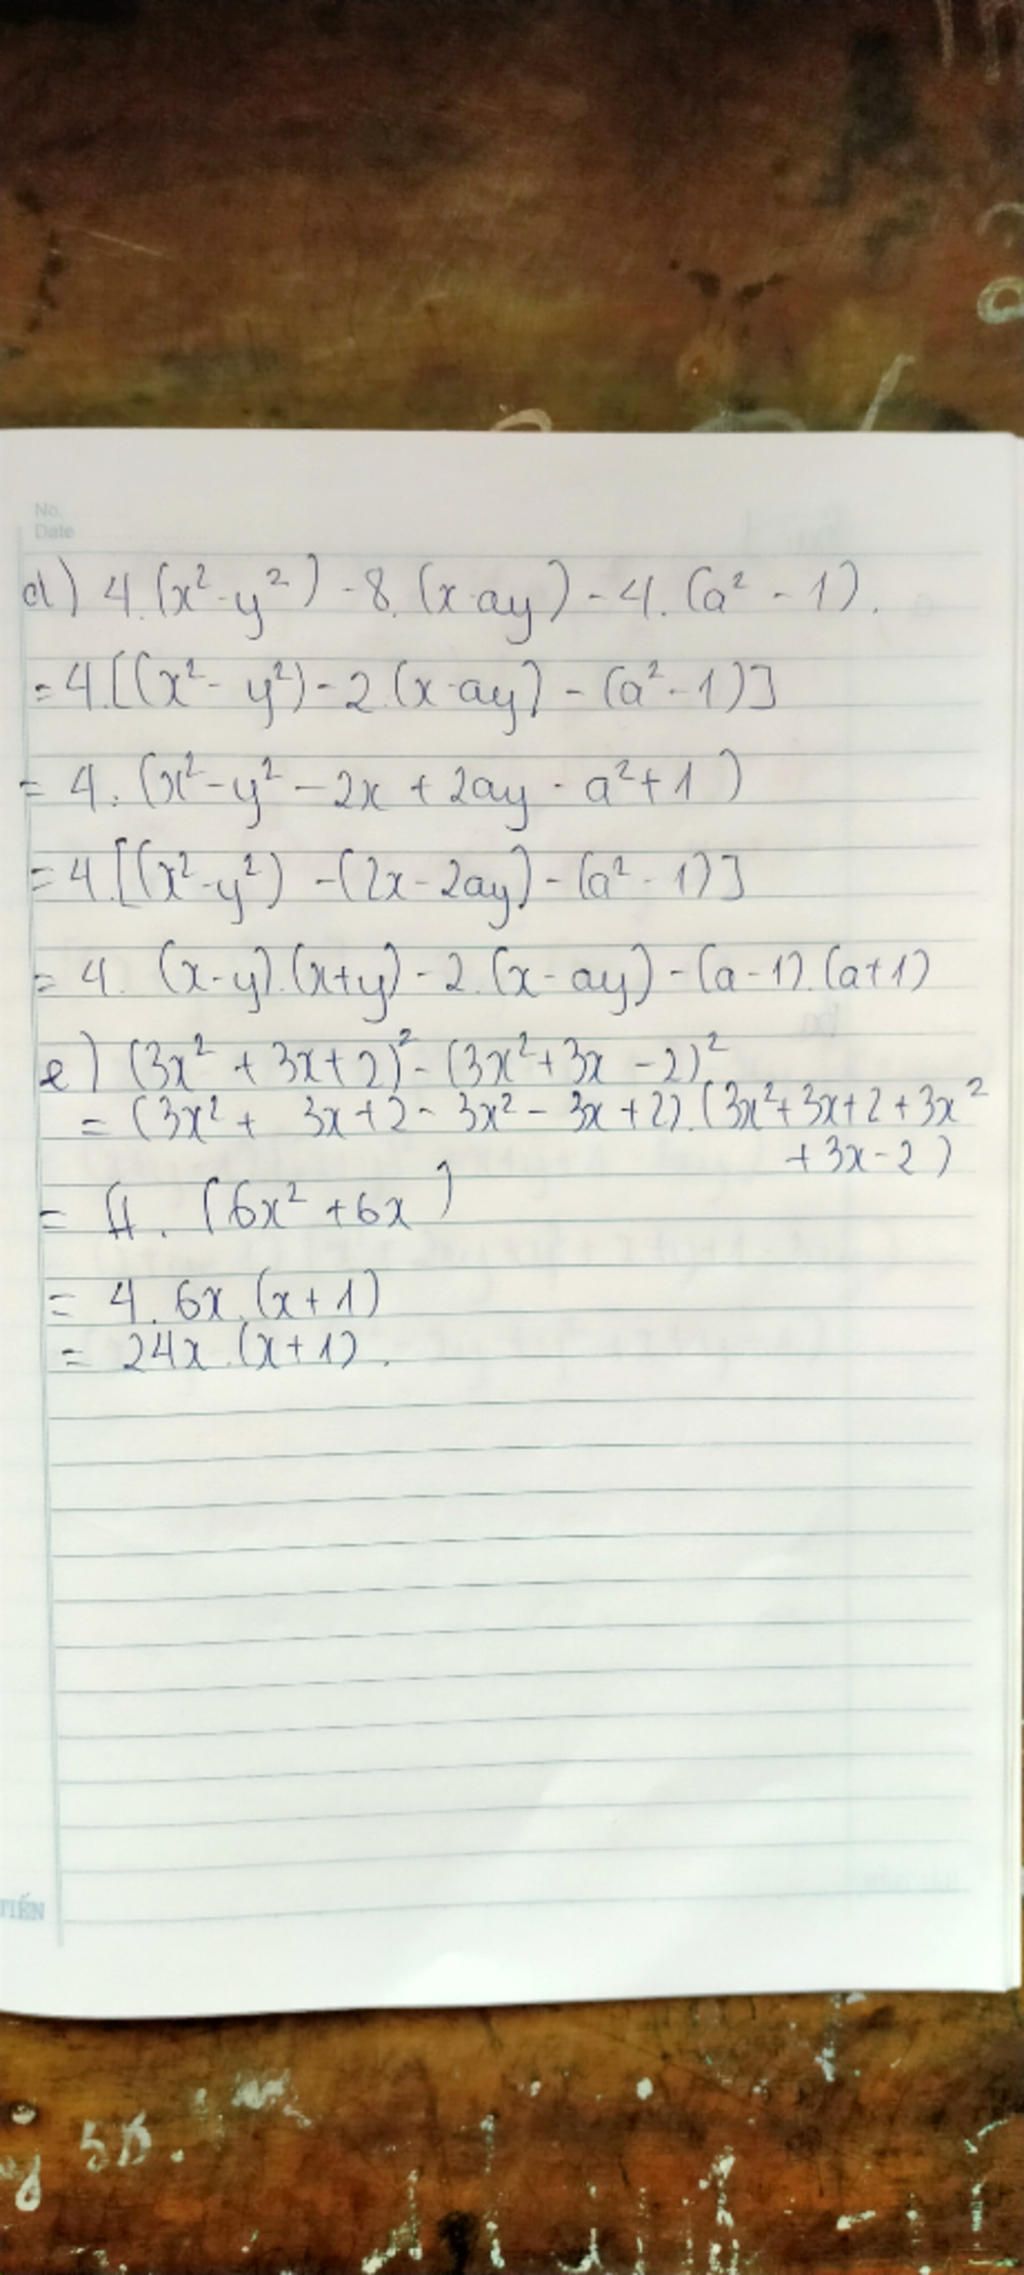 No.
Date
d) 4.(x² - y²) - 8.(x - ay) - 4.(a² - 1).
= 4.[(x² - y²) - 2.(x - ay) - (a² - 1)]
= 4.(x² - y² - 2x + 2ay - a² + 1)
= 4.[(x² - y²) - (2x - 2ay) - (a² - 1)]
= 4. (x - y).(x + y) - 2.(x - ay) - (a - 1).(a + 1)
e) (3x² + 3x + 2)² - (3x² + 3x - 2)²
= (3x² + 3x + 2 - 3x² - 3x + 2).(3x² + 3x + 2 + 3x²
+ 3x - 2)
= 4. (6x² + 6x)
= 4. 6x.(x + 1)
= 24x.(x + 1).
TIẾN
5D.